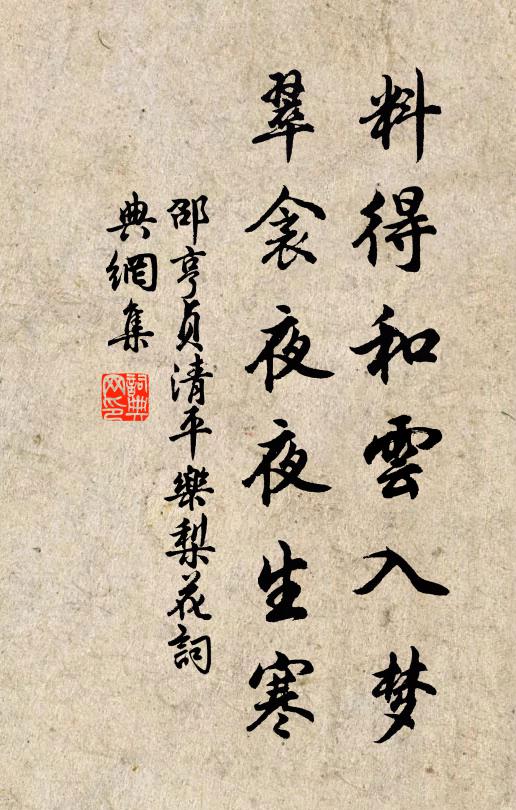 料得和雲入梦
翠衾夜夜生寒
邵亨貞清平樂梨花詞
典網集
詞典
网印